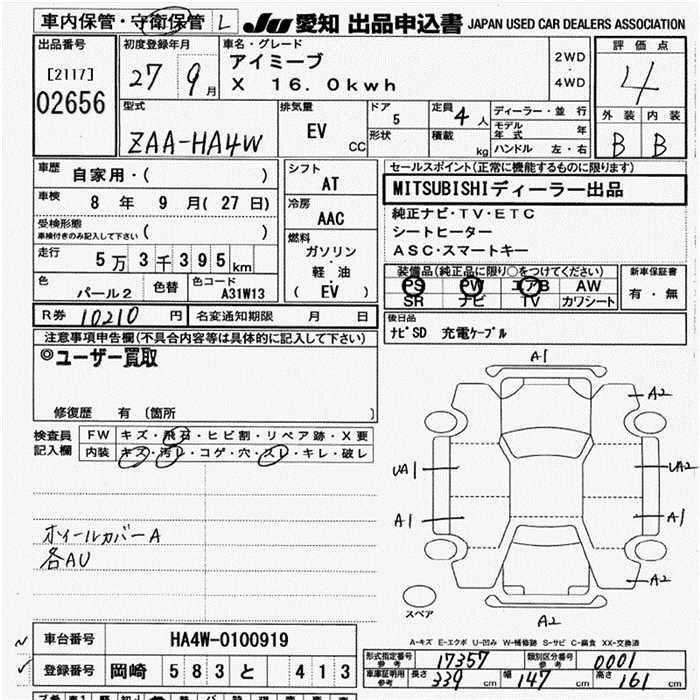 車内保管・守衛保管 L
JU 愛知 出品申込書 JAPAN USED CAR DEALERS ASSOCIATION
出品番号
[2117]
02656
初度登録年月
27 9月
車名・グレード
アイミーブ
X 16.0kwh
2WD
・
4WD
評価点
4
外装 内装
B B
型式
ZAA-HA4W
排気量
EV
CC
ドア
5
形状
定員
4人
積載
kg
ディーラー・並行
モデル年式 年
ハンドル 左・右
車歴
自家用・( )
車検
8 年 9 月( 27 日)
受検形態
車検付きのみ記入して下さい ( )
走行
5万3千395km
色
パール2
色替
色コード
A31W13
シフト
AT
冷房
AAC
燃料
ガソリン
・
軽・油
( EV )
セールスポイント(正常に機能するものに限り)
MITSUBISHIディーラー出品
純正ナビ・TV・ETC
シートヒーター
ASC・スマートキー
装備品(純正品に限り○をつけてください)
PS PW エアB AW
SR ナビ TV カワシート
新車保証書
有・無
R券 10210 円
名変通知期限 月 日
後日品
ナビSD 充電ケーブル
注意事項申告欄(不具合内容等は具体的に記入して下さい)
◎ユーザー買取
修復歴 有 〔箇所 〕
検査員
記入欄
FW キズ・飛石・ヒビ割・リペア跡・X要
内装 キズ・汚レ・コゲ・穴・スレ・キレ・破レ
ホイールカバーA
各AU
A1
A2
UA1
UA2
A1
A1
A2
A2
スペア
A-キズ E-エクボ U-凹み W-補修跡 S-サビ C-腐食 XX-交換済
車台番号
HA4W-0100919
登録番号
岡崎 583 と 413
形式指定番号
参考
17357
類別区分番号
参考
0001
車庫証明用
参考
長さ 339 cm
幅 147 cm
高さ 161 cm